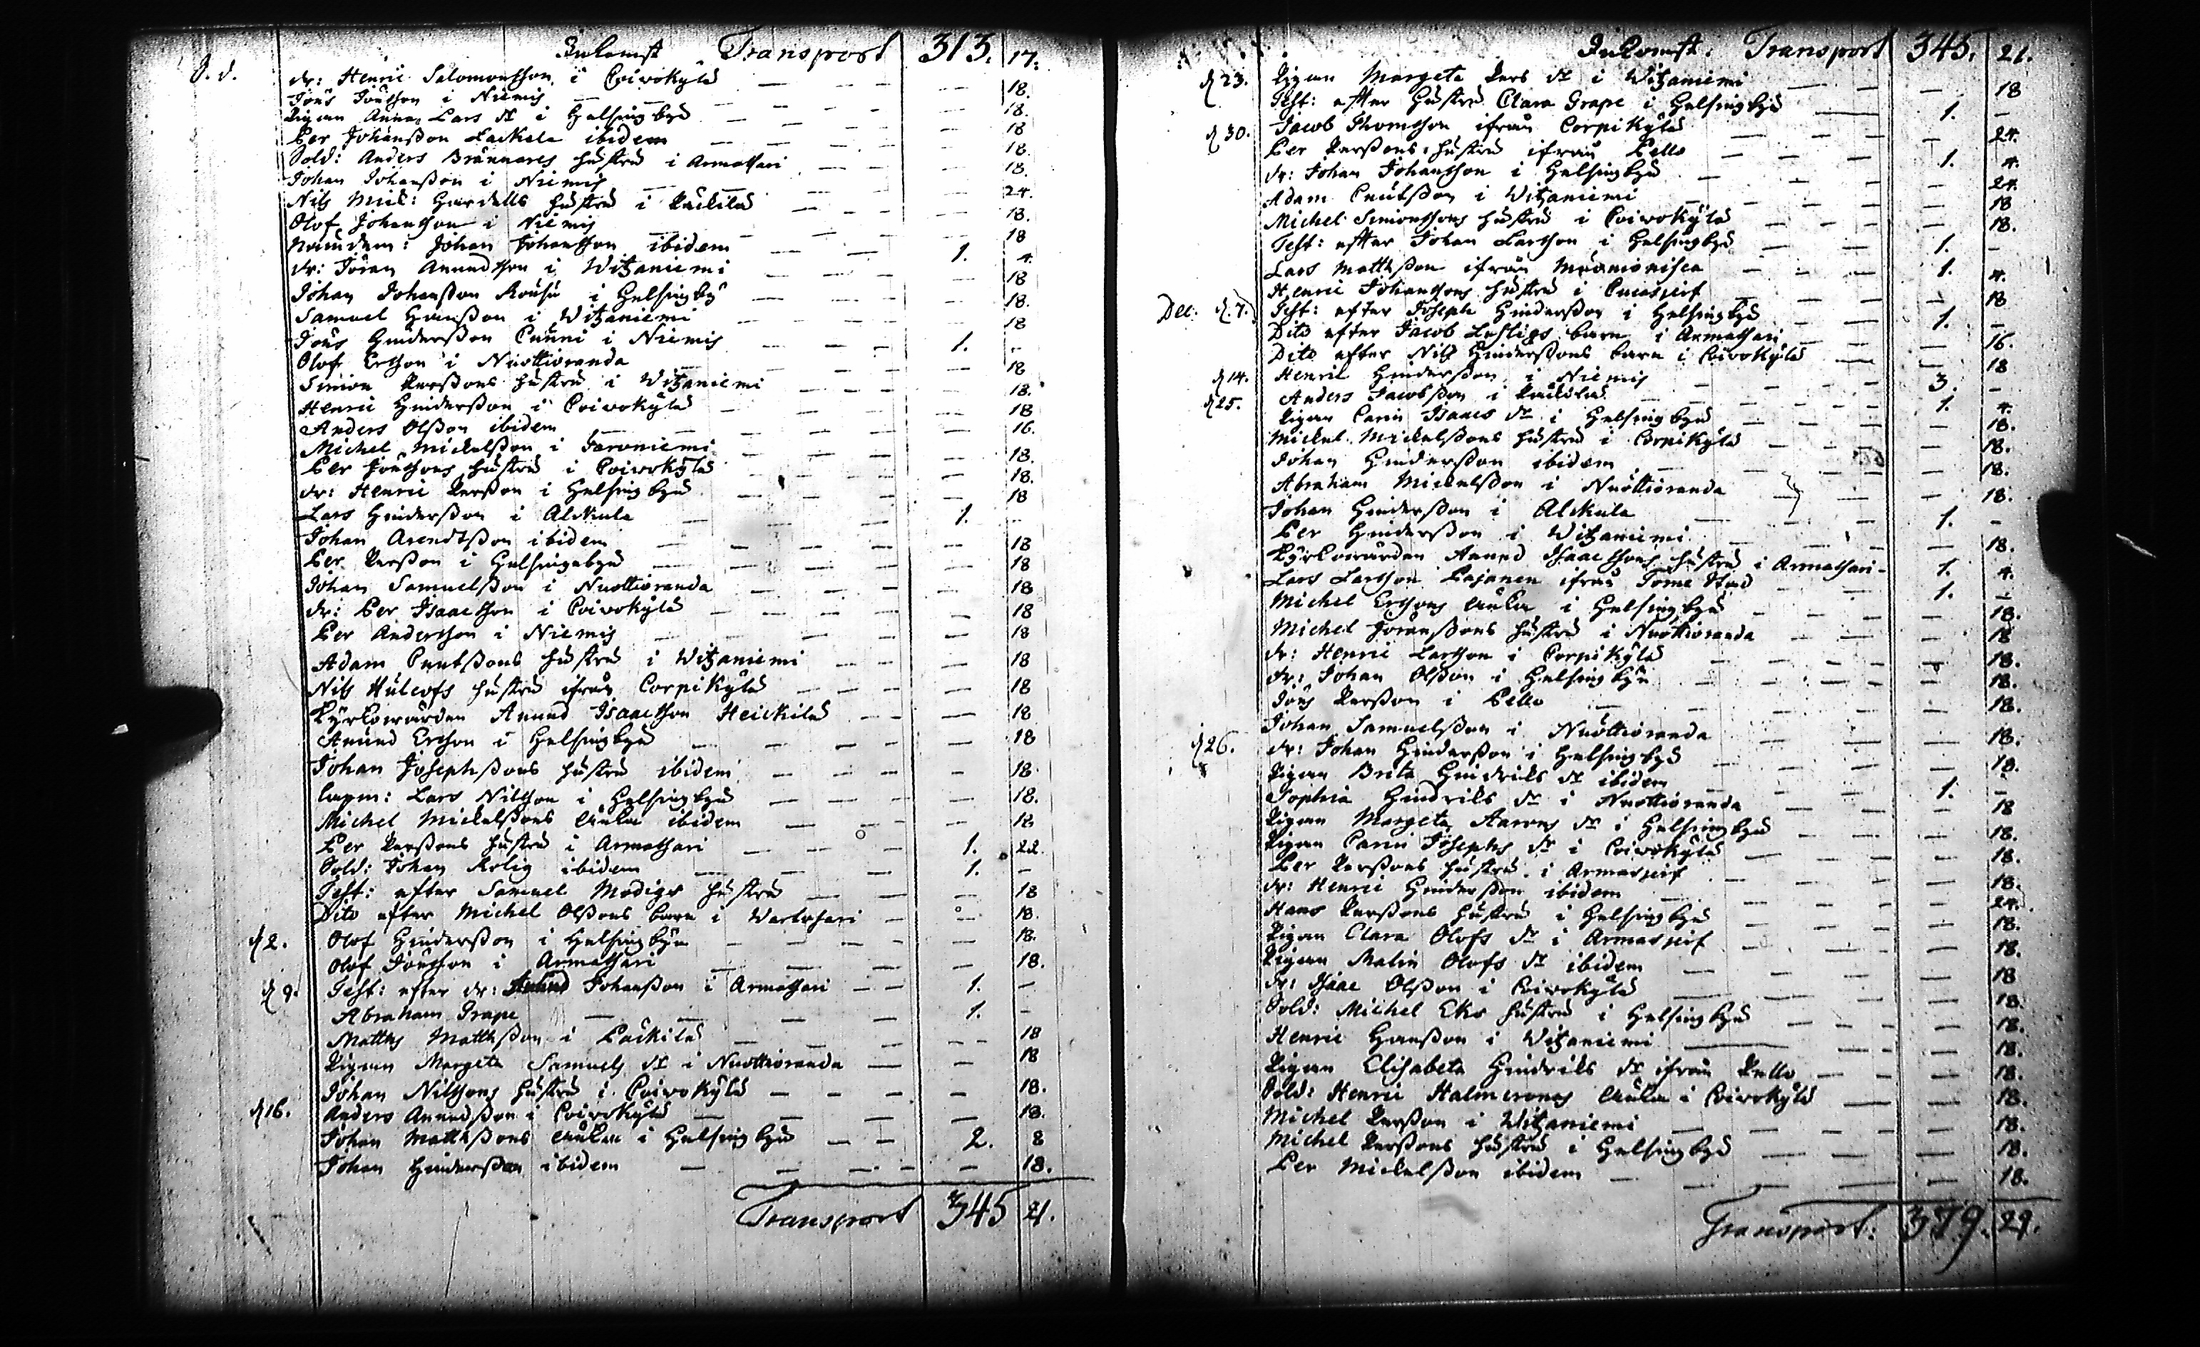 Inkomst Transport 313. 17.
D. d. dr: Henric Salomonsson i Coivokylä — 18.
Jöns Jönsson i Niemis — 18.
Pigan Anna Lars dr i Helsingbyn — 18
Per Johansson Lackela ibidem — 18.
Sold: Anders Brännares hustru i Armassari — 18.
Johan Johansson i Niemis — 24.
Nils Mick: Hustru i Päckilä — 18.
Olof Johansson i Niemis — 18
Nämndem: Johan Johansson ibidem 1. 4.
dr: Jöran Anundsson i Witzaniemi — 18
Johan Johansson Rousu i Helsingby — 18.
Samuel Hansson i Witzaniemi — 18
Jöns Hindersson Cunni i Niemis 1. -
Olof Ersson i Nuottioranda — 18
Simon Perssons hustru i Witzaniemi — 18.
Henric Hindersson i Coivokylä — 18
Anders Olsson ibidem — 16.
Michel Mickelsson i Jaroniemi — 18.
Per Jönssons hustru i Coivokylä — 18.
dr: Henric Persson i Helsingbyn — 18
Lars Hindersson i Alckula 1. -
Johan Arendtsson ibidem — 18
Per Persson i Helsingebyn — 18
Johan Samuelsson i Nuottioranda — 18
dr: Per Isaacsson i Coivokylä — 18
Per Andersson i Niemis — 18
Adam Cnutssons hustru i Witzaniemi — 18
Nils Hulcofs hustru ifrån Corpikylä — 18
Kyrkowärden Anund Isaacsson Heickilä — 18
Anund Ersson i Helsingbyn — 18
Johan Josephssons hustru ibidem — 18.
Capm: Lars Nilsson i Helsingbyn — 18.
Michel Mickelssons änka ibidem — 18
Per Perssons hustru i Armassari 1. 22
Sold: Johan Rolig ibidem 1. -
Test: efter Samuel Modigs hustru — 18
Dito efter Michel Olssons barn i — 18.
d 2. Olof Hindersson i Helsingbyn — 18.
Olof Jönsson i Armassari — 18.
d 9. Test: efter dr: Anund Johansson i Armassari 1. -
Abraham Grape 1. -
Matths Matthsson i Päckilä — 18
Pigan Margeta Samuels dr i Nuottioranda — 18
Johan Nilssons hustru i Coivokylä — 18.
d 16. Anders Anundsson i Coivokylä — 18.
Johan Matthssons änka i Helsingbyn 2. 8
Johan Hindersson ibidem — 18.
Transport 345 21.
Inkomst: Transport 345. 21.
d 23. Pigan Margeta Pers dr i Witzaniemi — 18
Test: efter hustru Clara Grape i Helsingbyn 1. -
d 30. Jacob Thomsson ifrån Corpikylä — 24.
Per Perssons hustru ifrån Pello 1. 4.
dr: Johan Johansson i Helsingbyn — 24.
Adam Cnutsson i Witzaniemi — 18
Michel Simonssons hustru i Coivokylä — 18.
Test: efter Johan Larsson i Helsingbyn 1. -
Lars Matthsson ifrån Muonionisca 1. 4.
Henric Johanssons hustru i — 18
Dec. d. 7. Test: efter Joseph Hindersson i Helsingbyn 1. -
Dito efter Jacob Lustigs barn i Armassari — 16.
Dito efter Nils Hinderssons barn i Coivokylä — 18
d 14. Henric Hindersson i Niemis 3. -
d 25. Anders Jacobsson i Päckilä 1. 4.
Pigan Carin Isaacs dr i Helsingbyn — 18.
Mickel Mickelssons hustru i Corpikylä — 18.
Johan Hindersson ibidem — 18.
Abraham Mickelsson i Nuottioranda — 18.
Johan Hindersson i Alckula 1. -
Per Hindersson i Witzaniemi — 18.
Kyrkowärden Anund Isaacssons hustru i Armassari 1. 4.
Lars Larsson Pajanen ifrån Torne Stad 1. -
Michel Erssons änka i Helsingbyn — 18.
Michel Jöranssons hustru i Nuottioranda — 18
dr: Henric Larsson i Corpikylä — 18.
dr: Johan Olsson i Helsingbyn — 18.
Jöns Persson i Pello — 18.
Johan Samuelsson i Nuottioranda — 18.
d 26. dr: Johan Hindersson i Helsingbyn — 18.
Pigan Brita Hindriks dr ibidem 1. -
Sophia Hindriks dr i Nuottioranda — 18
Pigan Margeta Aarons dr i Helsingbyn — 18.
Pigan Carin Josephs dr i Coivokylä — 18.
Per Perssons hustru i — 18.
dr: Henric Hindersson ibidem — 24.
Hans Perssons hustru i Helsingbyn — 18.
Pigan Clara Olofs dr i — 18.
Pigan Malin Olofs dr ibidem — 18
dr: Isaac Olsson i Coivokylä — 18.
Sold: Michel Eks hustru i Helsingbyn — 18.
Henric Hansson i Witzaniemi — 18.
Pigan Elisabeta Hindriks dr ifrån Pello — 18.
Sold: Henric änka i Coivokylä — 18.
Michel Persson i Witzaniemi — 18.
Michel Perssons hustru i Helsingbyn — 18.
Per Mickelsson ibidem — 18.
Transport: 379. 29.